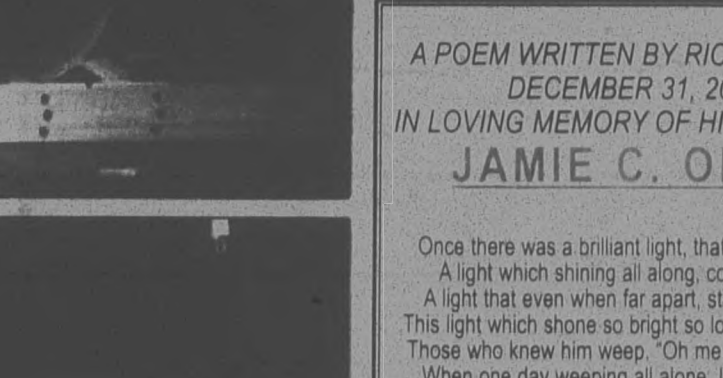 A POEM WRITTEN BY RIC
DECEMBER 31, 20
IN LOVING MEMORY OF HI
JAMIE C. O
Once there was a brilliant light, that
A light which shining all along, co
A light that even when far apart, st
This light which shone so bright so lo
Those who knew him weep, "Oh me
When one day weeping all alone,